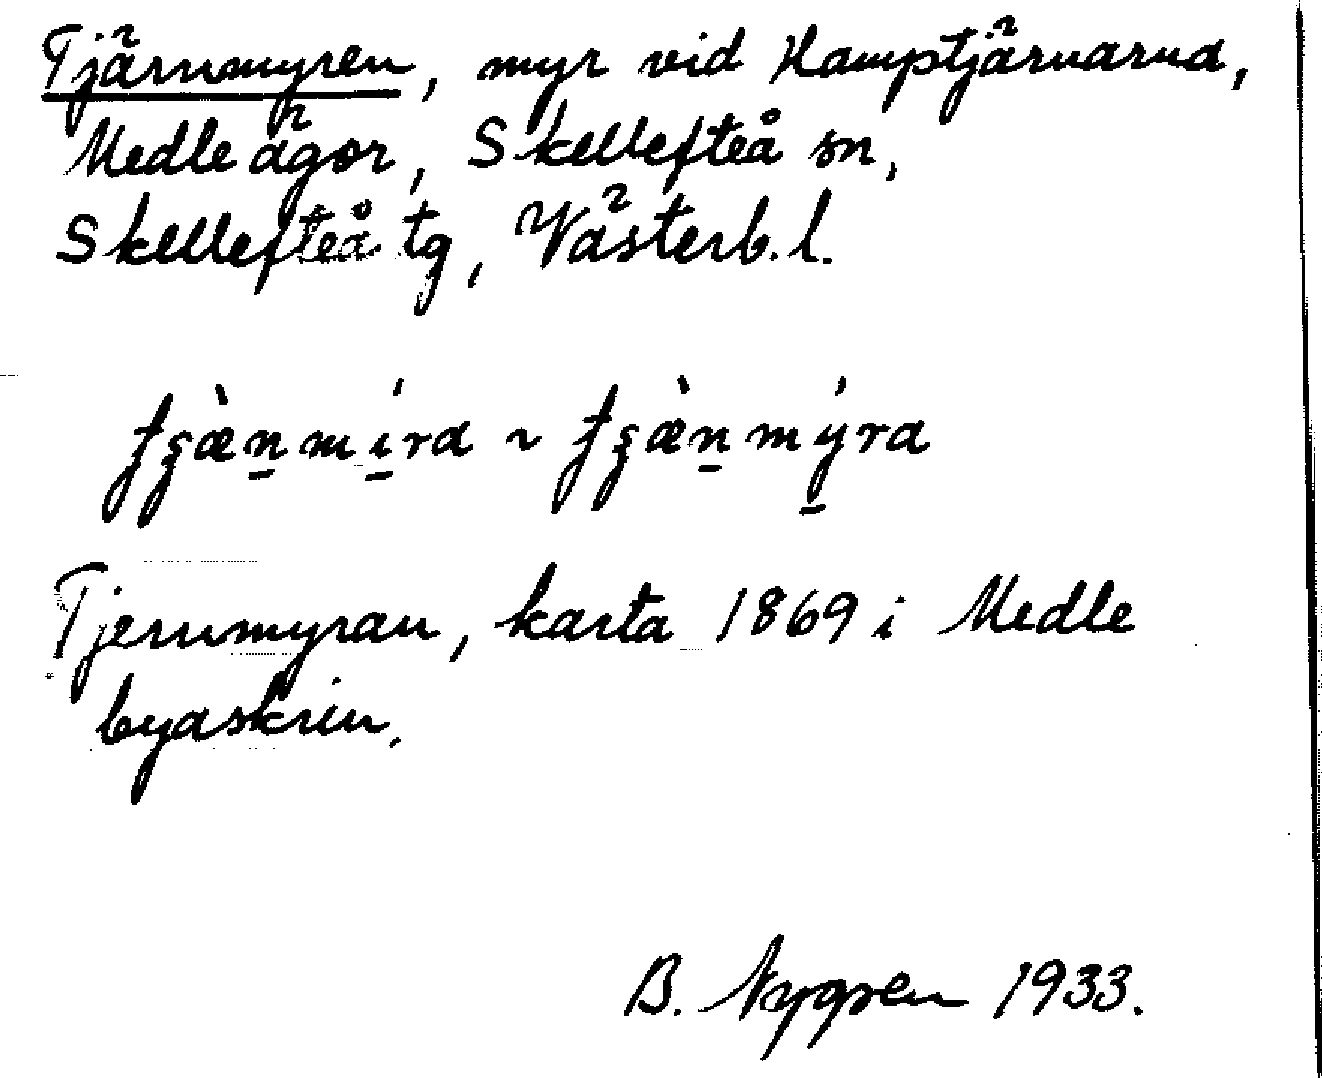 Tjärnmyren, myr vid Hamptjärnarna,
Medle ägor, Skellefteå sn,
Skellefteå tg, Västerb. l.
Tjernmyran, karta 1869 i Medle
byaskrin.
B. Nygren 1933.